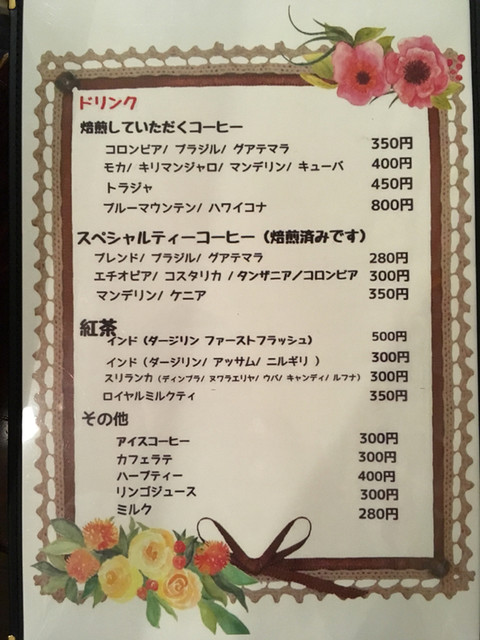 ドリンク
焙煎していただくコーヒー
コロンビア/ ブラジル/ グアテマラ 350円
モカ/ キリマンジャロ/ マンデリン/ キューバ 400円
トラジャ 450円
ブルーマウンテン/ ハワイコナ 800円
スペシャルティーコーヒー（焙煎済みです）
ブレンド/ ブラジル/ グアテマラ 280円
エチオピア/ コスタリカ /タンザニア/コロンビア 300円
マンデリン/ ケニア 350円
紅茶
インド（ダージリン ファーストフラッシュ） 500円
インド（ダージリン/ アッサム/ ニルギリ ） 300円
スリランカ（ディンブラ/ ヌワラエリヤ/ ウバ/ キャンディ/ ルフナ） 300円
ロイヤルミルクティ 350円
その他
アイスコーヒー 300円
カフェラテ 300円
ハーブティー 400円
リンゴジュース 300円
ミルク 280円